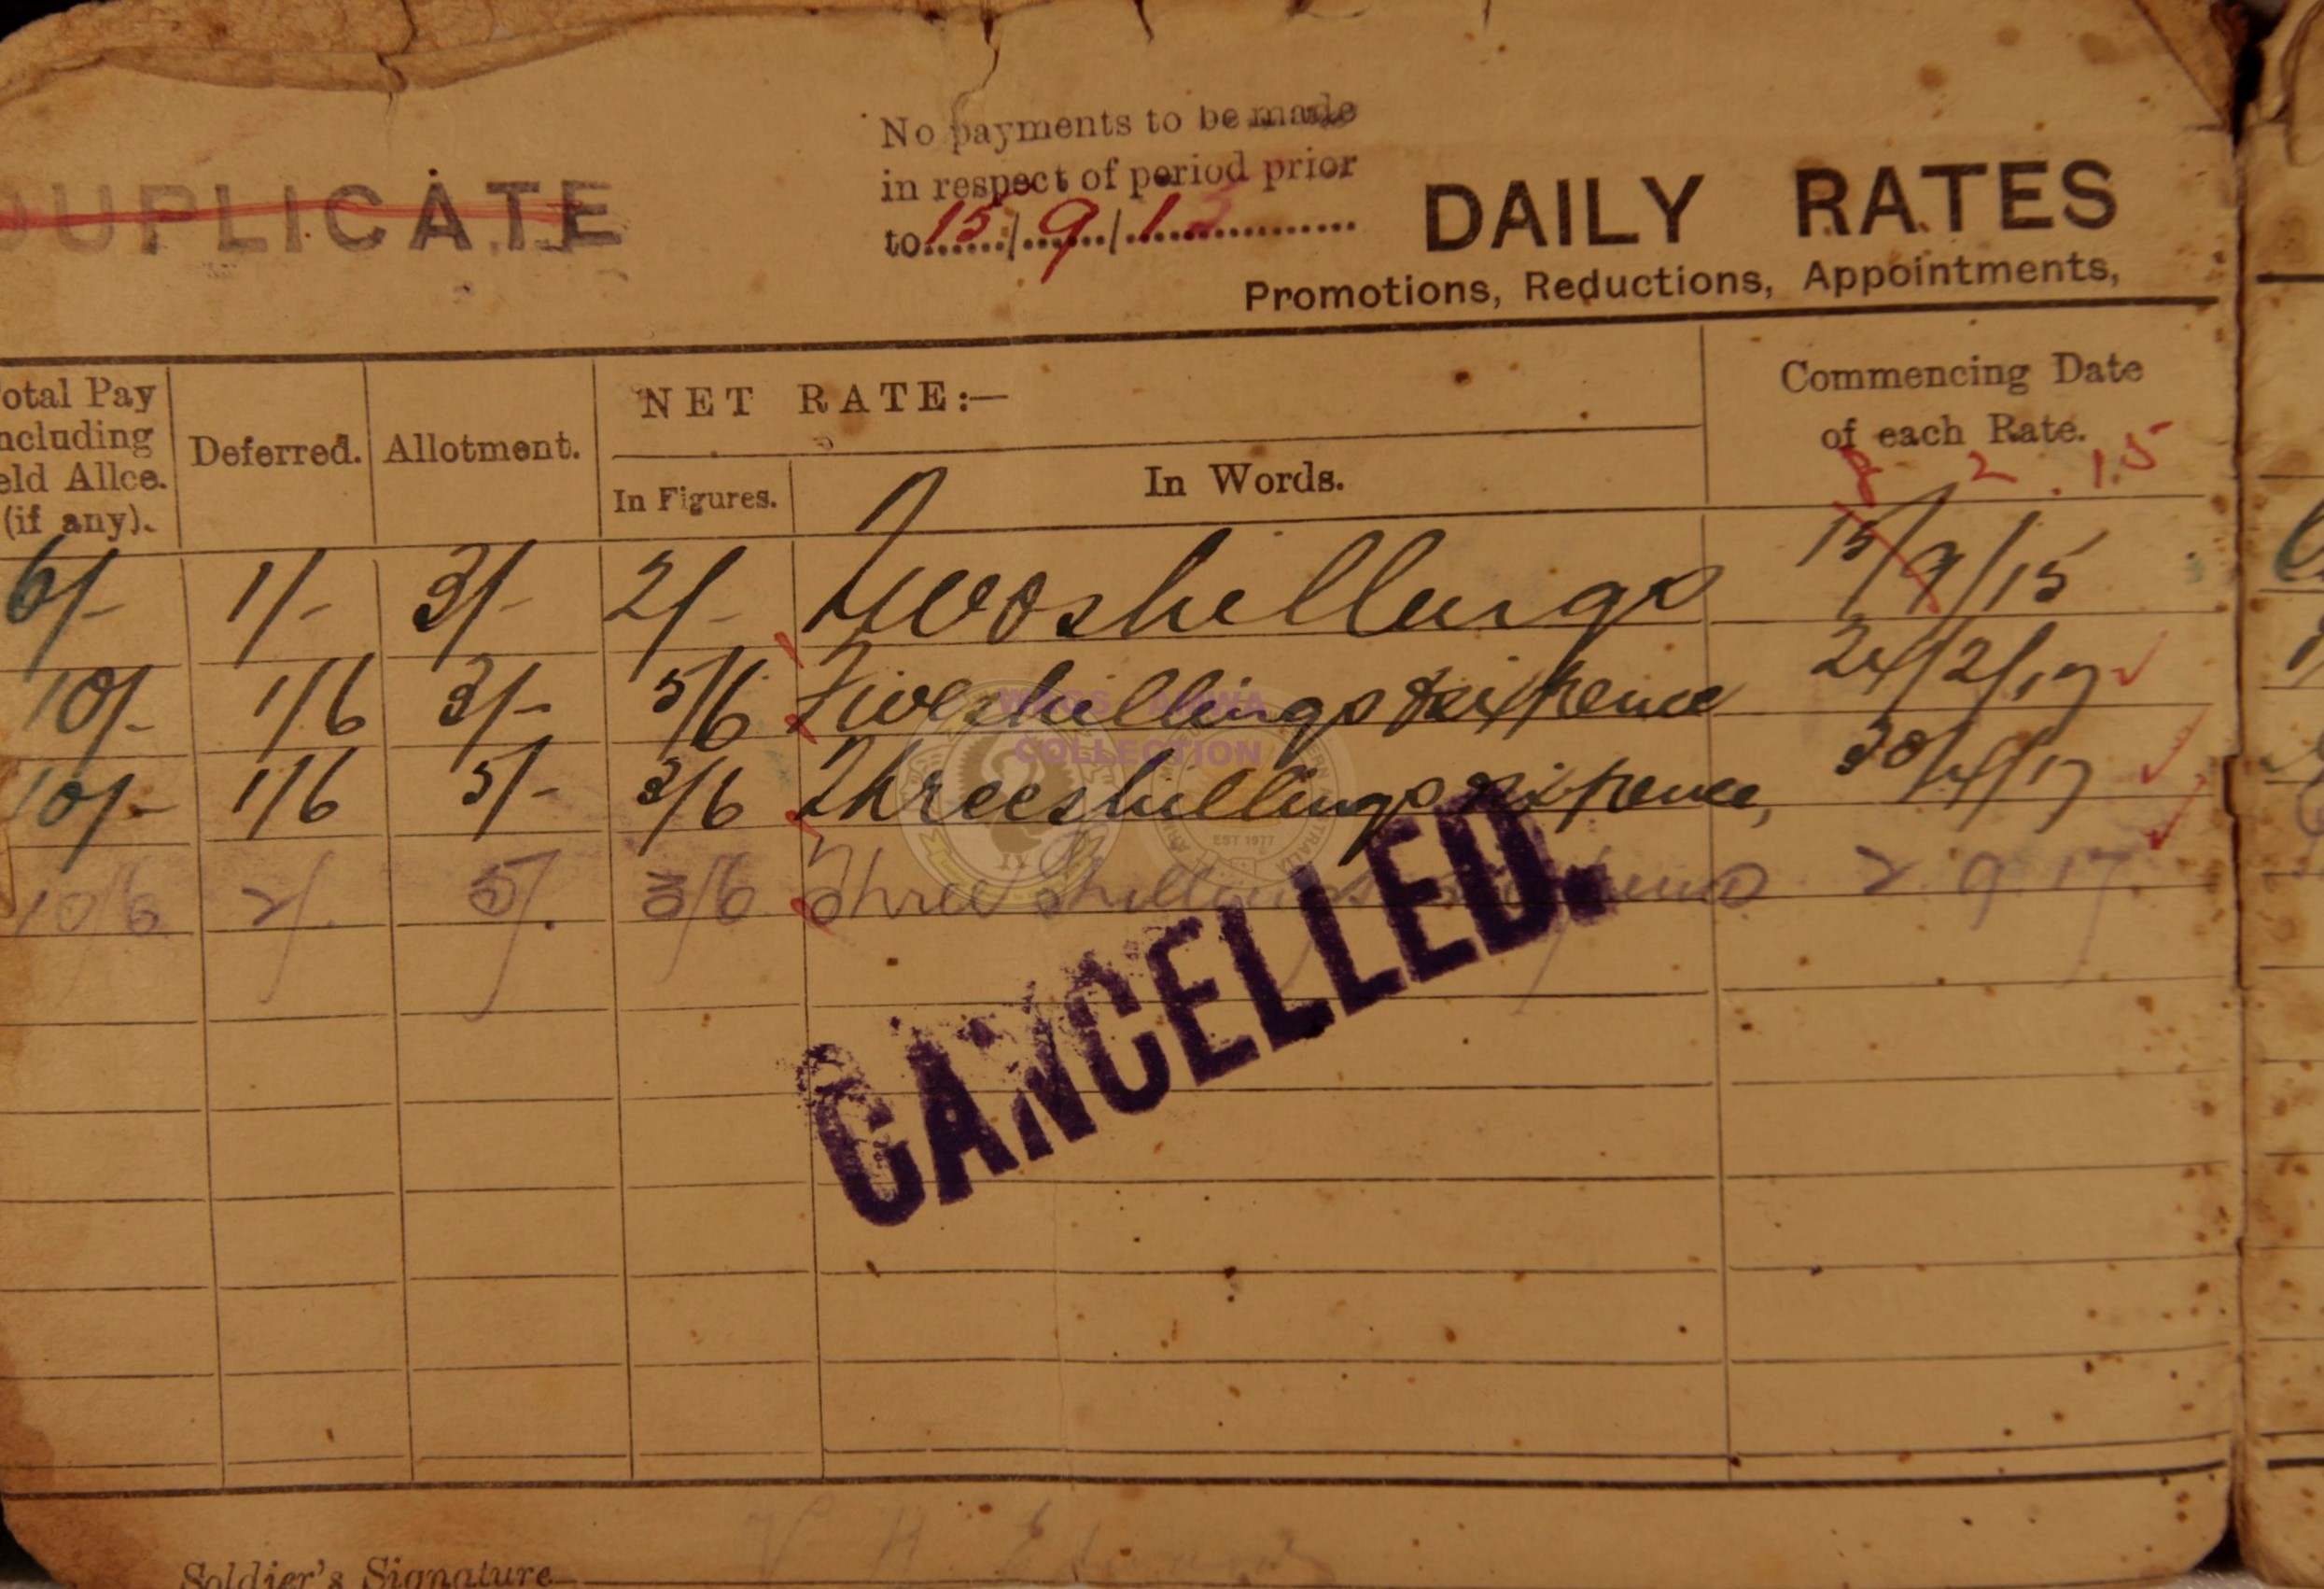 DUPLICATE
No payments to be made
in respect of period prior
to 15/9/15
DAILY RATES
Promotions, Reductions, Appointments,
otal Pay
ncluding
eld Allce.
(if any).
Deferred.
Allotment.
NET RATE:—
In Figures.
In Words.
Commencing Date
of each Rate.
8 2 . 15
6/- 1/- 3/- 2/- Two shillings 15/9/15
10/- 1/6 3/- 5/6 Five shillings & sixpence 24/2/17
10/- 1/6 5/- 3/6 Three shillings sixpence, 30/4/17
10/6 2/. 5/. 3/6 Three Shillings 2 9 17
WAGS ANWA
COLLECTION
EST 1977
CANCELLED.
Soldier's Signature